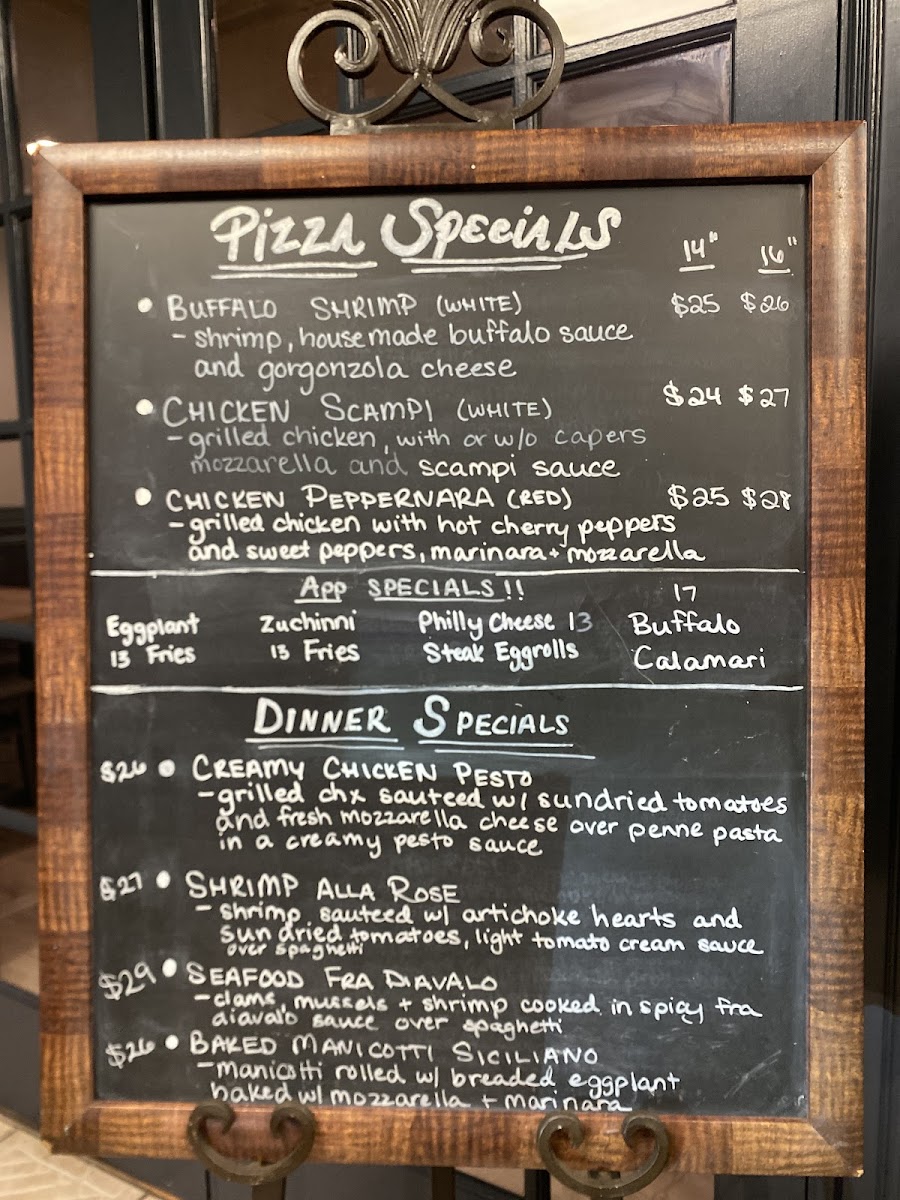 Pizza Specials 14" 16"
• BUFFALO SHRIMP (WHITE) $25 $26
- shrimp, housemade buffalo sauce
and gorgonzola cheese
• CHICKEN SCAMPI (WHITE) $24 $27
- grilled chicken, with or w/o capers
mozzarella and scampi sauce
• CHICKEN PEPPERNARA (RED) $25 $28
- grilled chicken with hot cherry peppers
and sweet peppers, marinara + mozzarella
App SPECIALS!!
Eggplant
13 Fries
Zuchinni
13 Fries
Philly Cheese 13
Steak Eggrolls
17
Buffalo
Calamari
DINNER SPECIALS
$26 • CREAMY CHICKEN PESTO
- grilled chx sauteed w/ sundried tomatoes
and fresh mozzarella cheese over penne pasta
in a creamy pesto sauce
$27 • SHRIMP ALLA ROSE
- shrimp, sauteed w/ artichoke hearts and
sun dried tomatoes, light tomato cream sauce
over spaghetti
$29 • SEAFOOD FRA DIAVALO
- clams, mussels + shrimp cooked in spicy fra
diavalo sauce over spaghetti
$26 • BAKED MANICOTTI SICILIANO
- manicotti rolled w/ breaded eggplant
baked w/ mozzarella + marinara